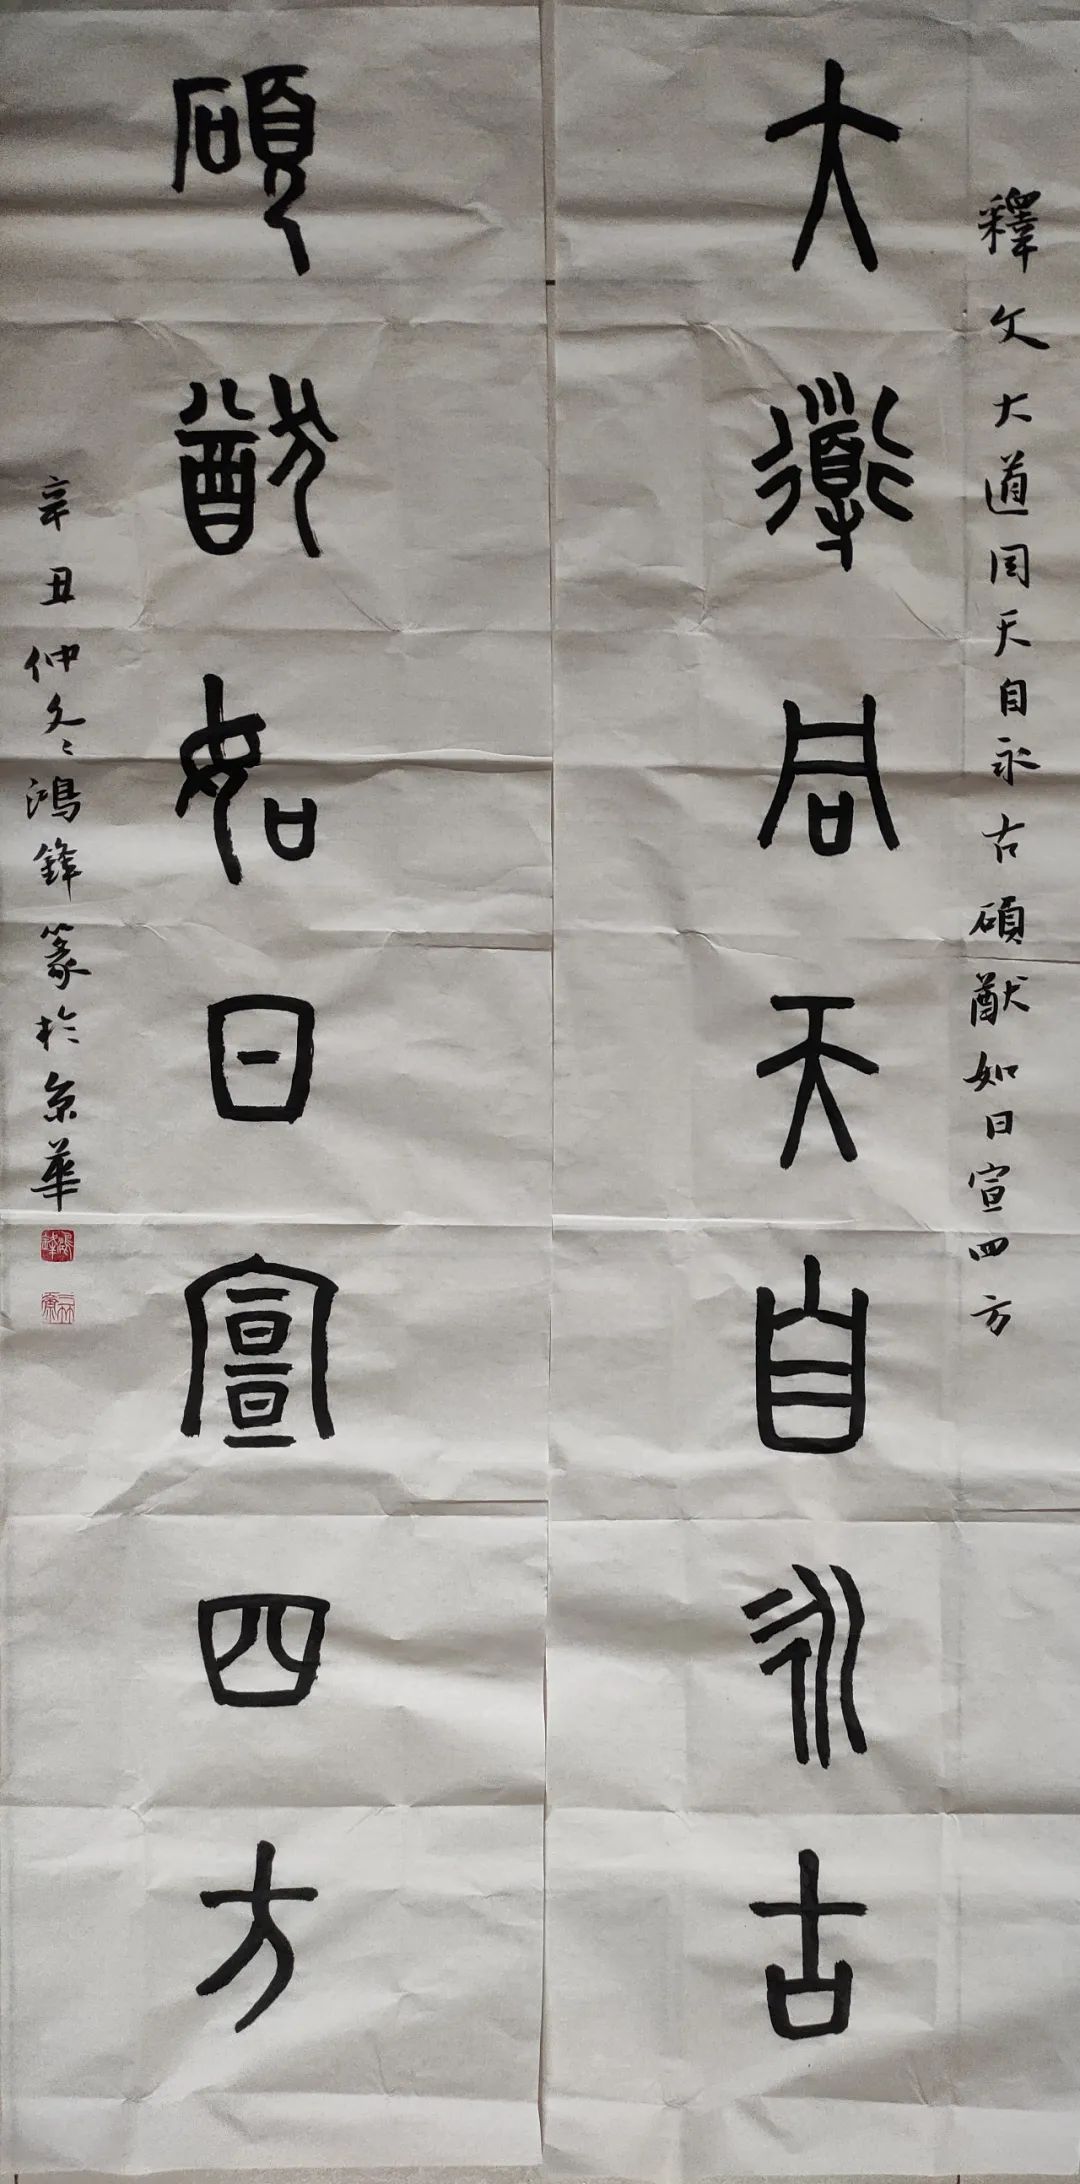 釋文大道同天自永古碩猷如日宣四方
大道同天自永古
碩猷如日宣四方
辛丑仲冬鴻鋒篆於京華
鴻鋒